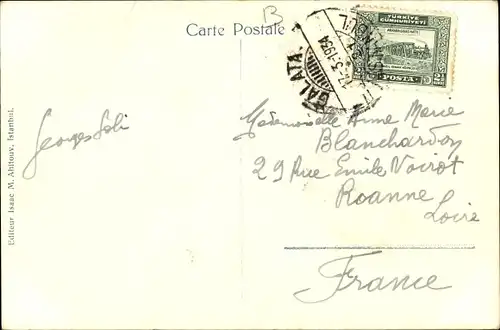 B
Carte Postale
TÜRKİYE
CUMHURİYETİ
POSTA
GALATA
17-3-1934
Georges Soli
Mademoiselle Anne Marie
Blanchardon
29 Rue Emile Noirot
Roanne
Loire
France
Editeur Isaac M. Ahitouv, Istanbul.